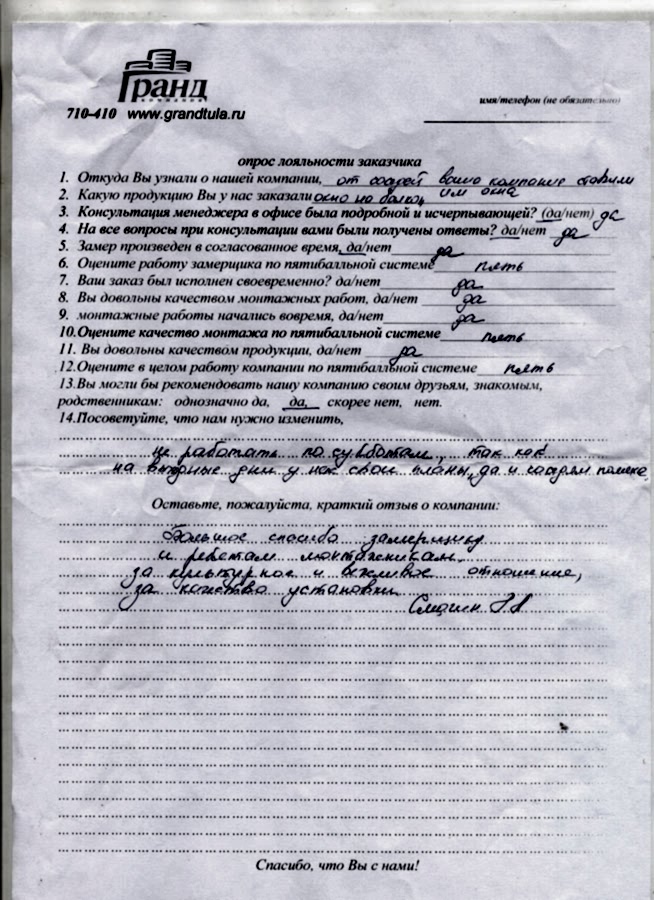 Гранд
компания
710-410 www.grandtula.ru
имя/телефон (не обязательно)
опрос лояльности заказчика
1. Откуда Вы узнали о нашей компании, от соседей ваша компания ставили
им окна
2. Какую продукцию Вы у нас заказали окно на балкон
3. Консультация менеджера в офисе была подробной и исчерпывающей? (да/нет) да
4. На все вопросы при консультации вами были получены ответы? да/нет да
5. Замер произведен в согласованное время, да/нет да
6. Оцените работу замерщика по пятибалльной системе пять
7. Ваш заказ был исполнен своевременно? да/нет да
8. Вы довольны качеством монтажных работ, да/нет да
9. монтажные работы начались вовремя, да/нет да
10.Оцените качество монтажа по пятибалльной системе пять
11. Вы довольны качеством продукции, да/нет да
12.Оцените в целом работу компании по пятибалльной системе пять
13.Вы могли бы рекомендовать нашу компанию своим друзьям, знакомым,
родственникам: однозначно да, да, скорее нет, нет.
14.Посоветуйте, что нам нужно изменить,
не работать по субботам, так как
на выходные дни у нас свои планы, да и соседям
Оставьте, пожалуйста, краткий отзыв о компании:
Большое спасибо замерщику
и ребятам монтажникам.
за культурное и вежливое отношение,
за качество установки
Спасибо, что Вы с нами!